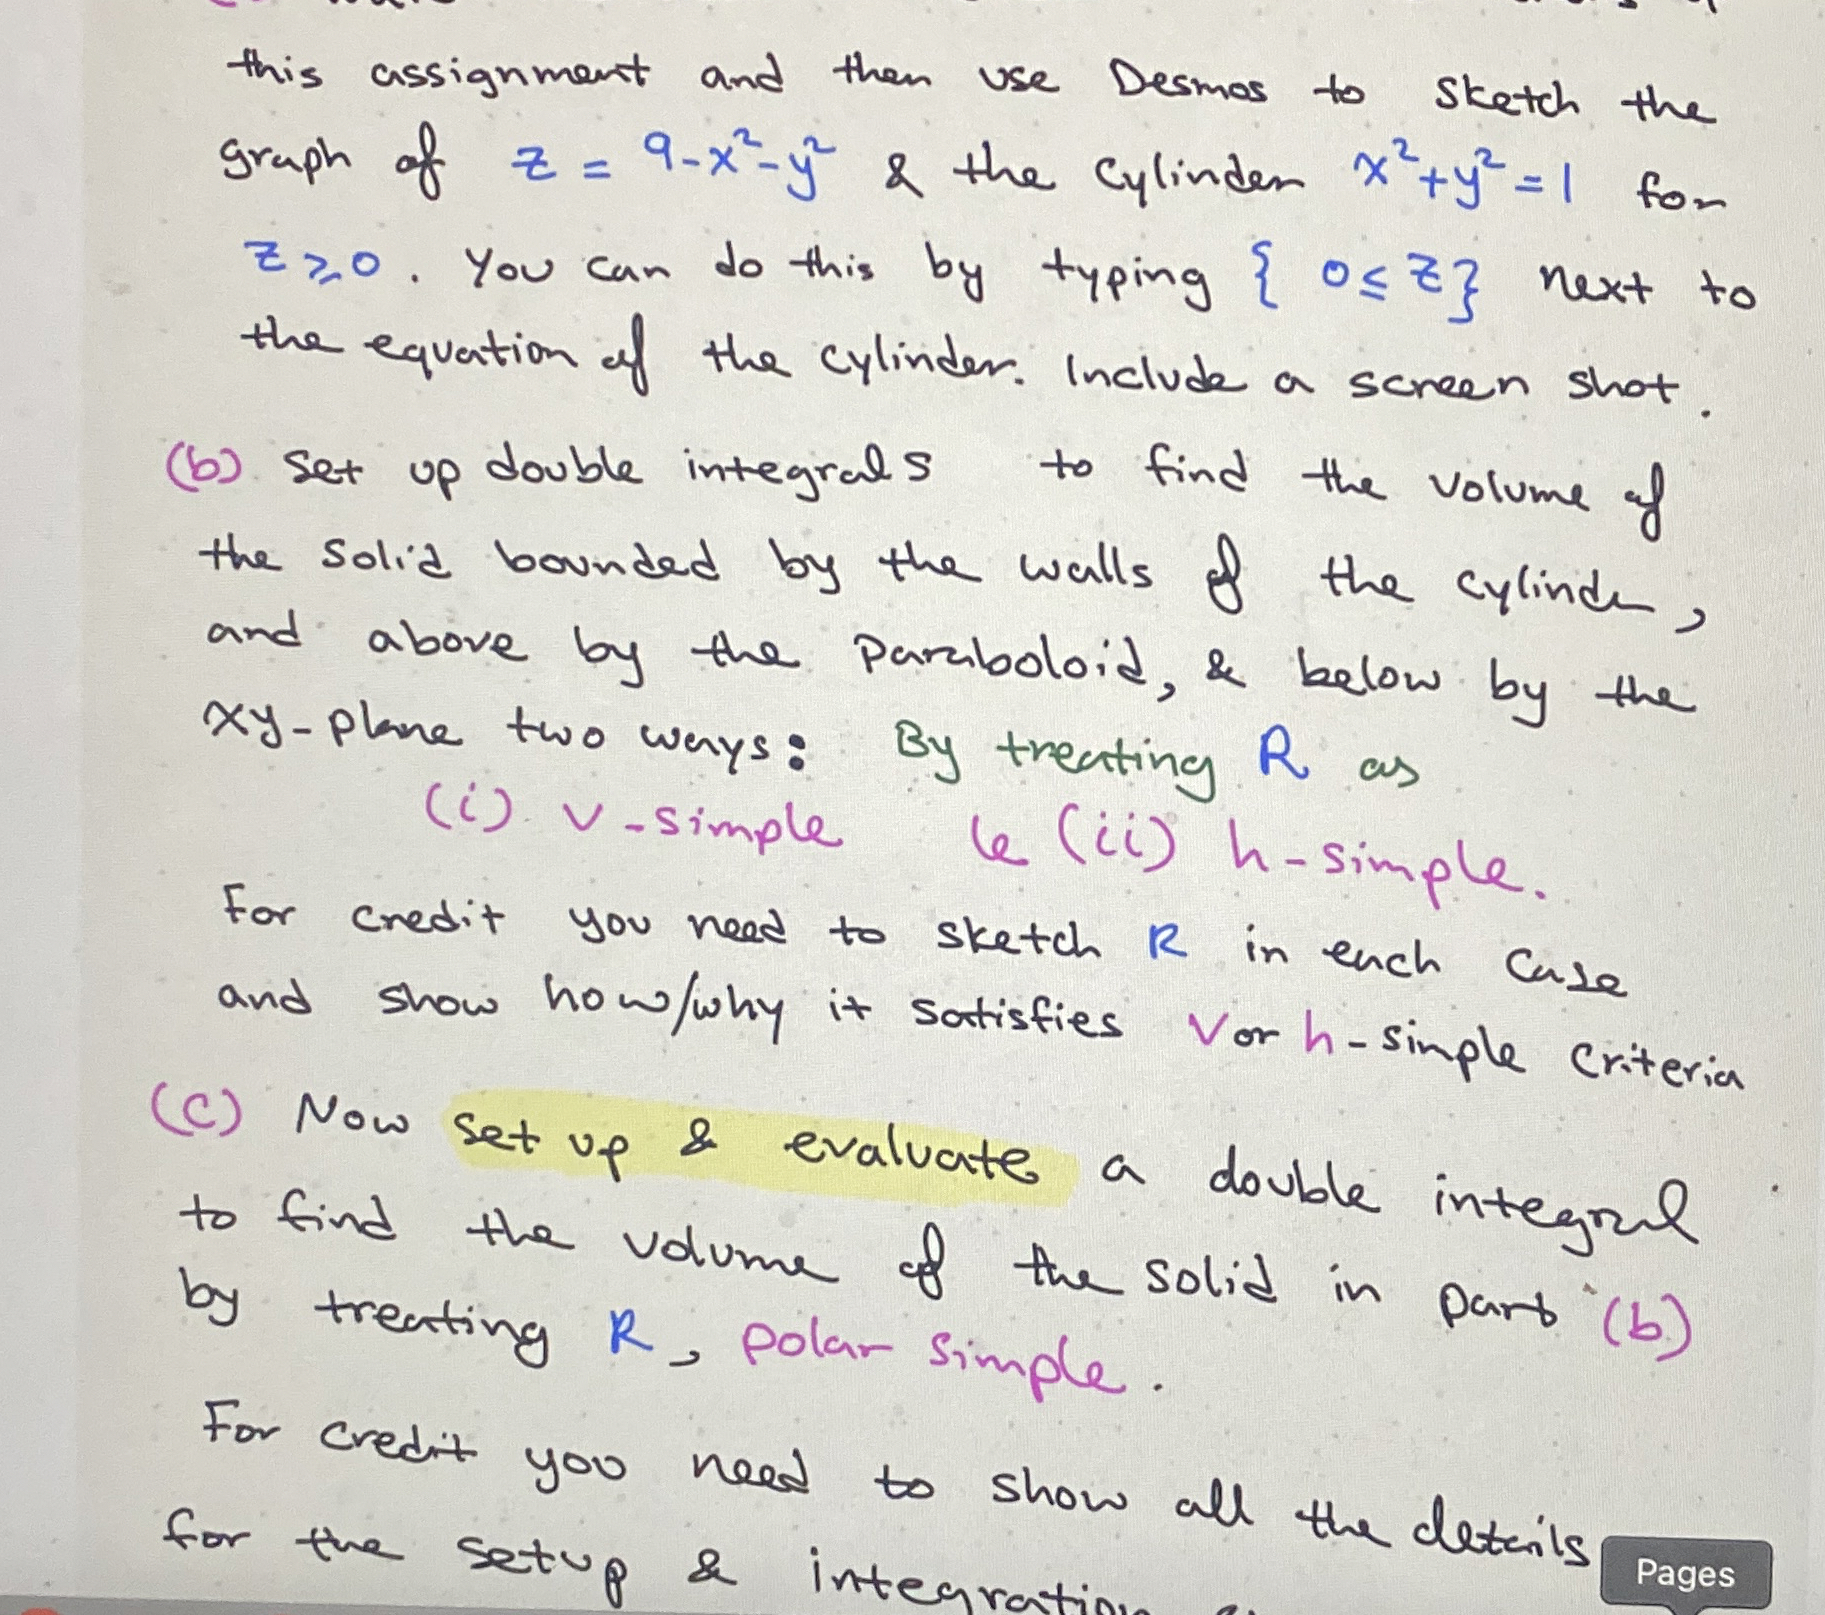 this assignment and then use Desmos to sketch the
graph of z = 9-x²-y² & the cylinder x²+y²=1 for
z≥0. You can do this by typing { 0≤z} next to
the equation of the cylinder. Include a screen shot.
(b) Set up double integrals to find the volume of
the solid bounded by the walls of the cylinder,
and above by the paraboloid, & below by the
xy-plane two ways: By treating R as
(i) v-simple & (ii) h-simple.
For credit you need to sketch R in each case
and show how/why it satisfies V or h-simple criteria
(c) Now set up & evaluate a double integral
to find the volume of the solid in part (b)
by treating R, polar simple.
For credit you need to show all the details
for the setup & integration
Pages